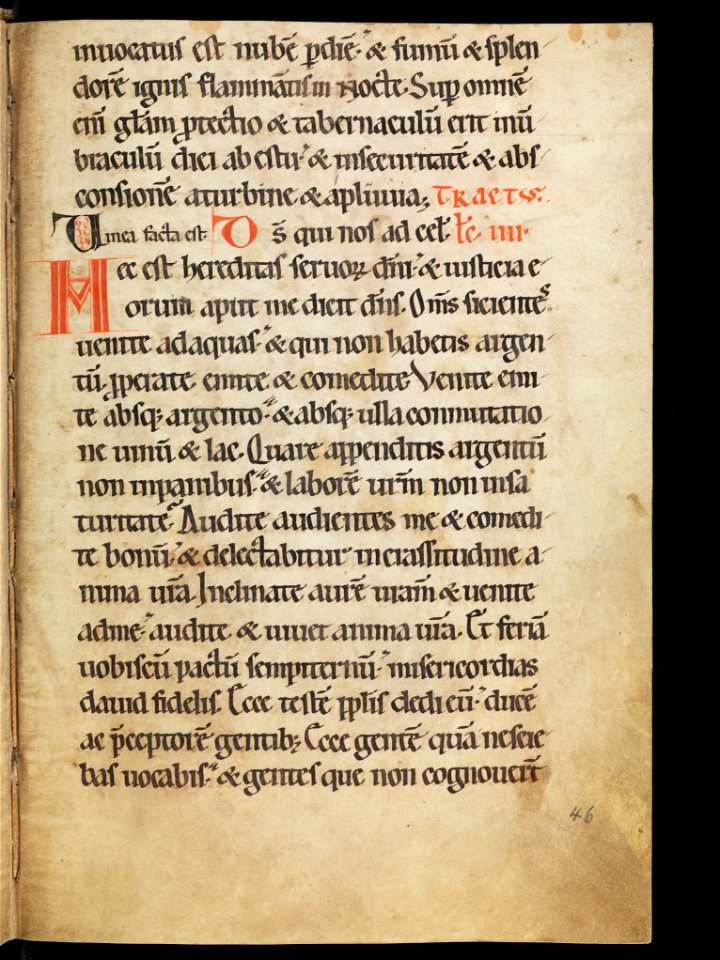 inuocatus est nubē ꝑ diē· & fumū & splen
dorē ignis flammātis in nocte· Suꝑ omnē
eni᷎ gl̄am ꝓtectio & tabernaculū erit inū
braculū diei ab estu· & insecuritatē & abs
consionē aturbine & apluuia; TRACTꝰ·
Uinea facta est· D̄s qui nos ad cel̄· l̄c· iiii·
Hec est hereditas seruoꝝ dn̄i· & iusticia e
orum aput me dicit dn̄s· Om̄s sicientes
uenite adaquas· & qui non habetis argen
tū· ꝓperate emite & comedite· Venite emi
te absq; argento· & absq; ulla conmutatio
ne uinū & lac· Quare appenditis argentū
non inpanibus· & laborē ur̄m non insa
turitate· Audite audientes me & comedi
te bonū· & delectabitur incrassitudine a
nima ur̄a· Inclinate aurē ur̄am & uenite
adme· audite & uiuet anima ur̄a· Et feriā
uobiscū pactū sempiternū· misericordias
dauid fidelis· Ecce testē ppl̄is dedi eū· ducē
ac p̄ceptorē gentib; Ecce gentē quā nescie
bas uocabis· & gentes que non cognouer̄t
46